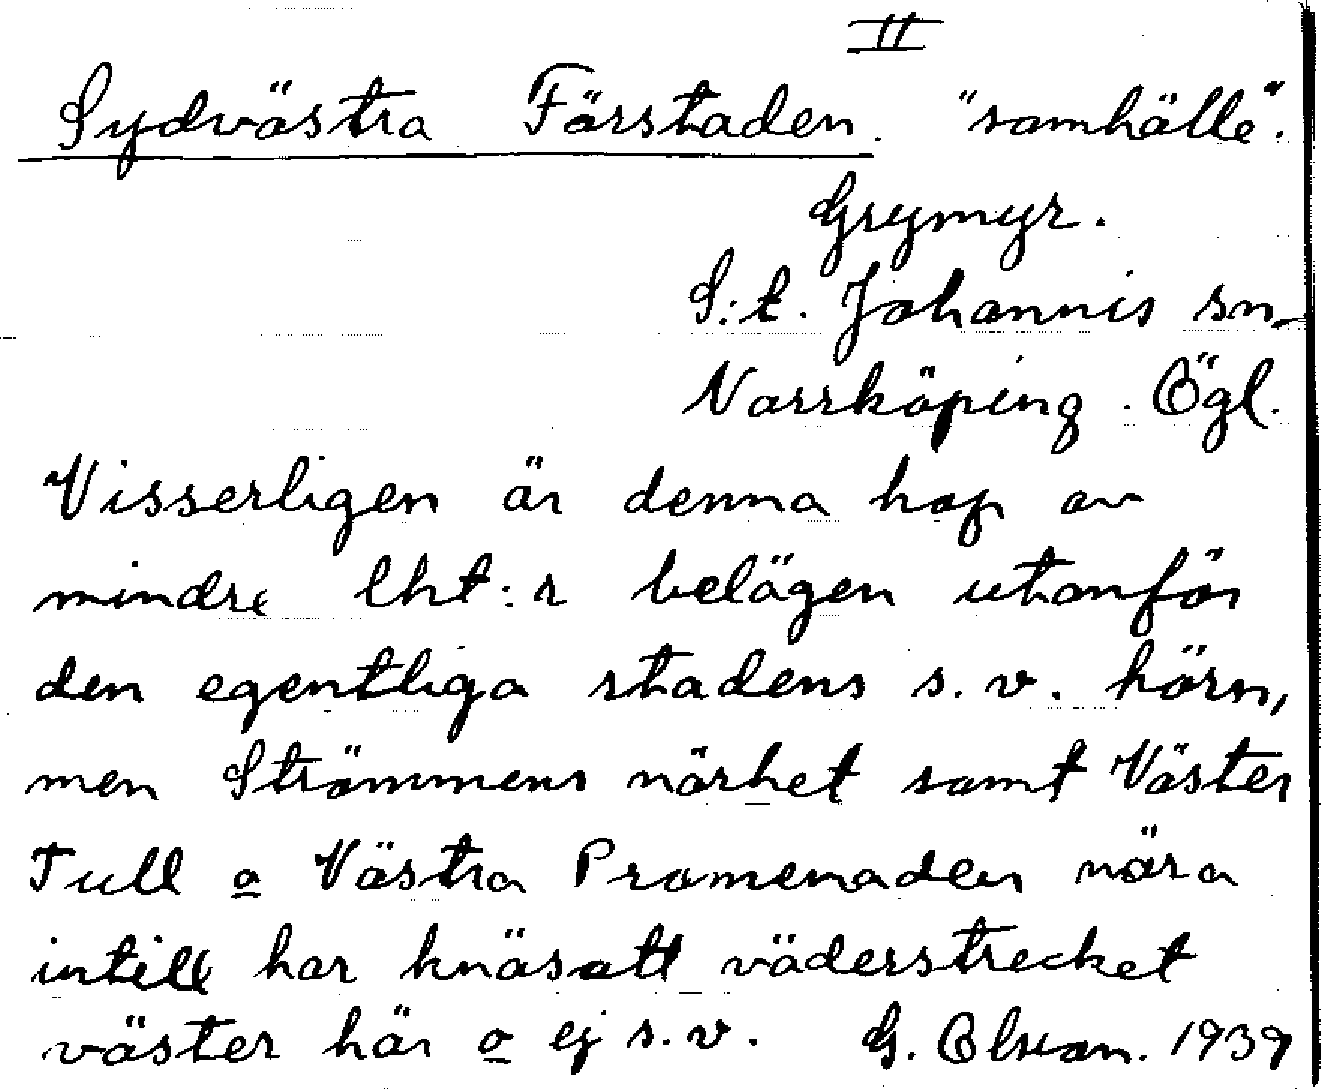 II
Sydvästra Förstaden. "samhälle".
Grymyr.
S:t. Johannis sn
Norrköping. Ögl.
Visserligen är denna hop av
mindre lht:r belägen utanför
den egentliga stadens s.v. hörn,
men Strömmens närhet samt Väster
Tull o Västra Promenaden nära
intill har knäsatt väderstrecket
väster här o ej s.v. G. Olson. 1939